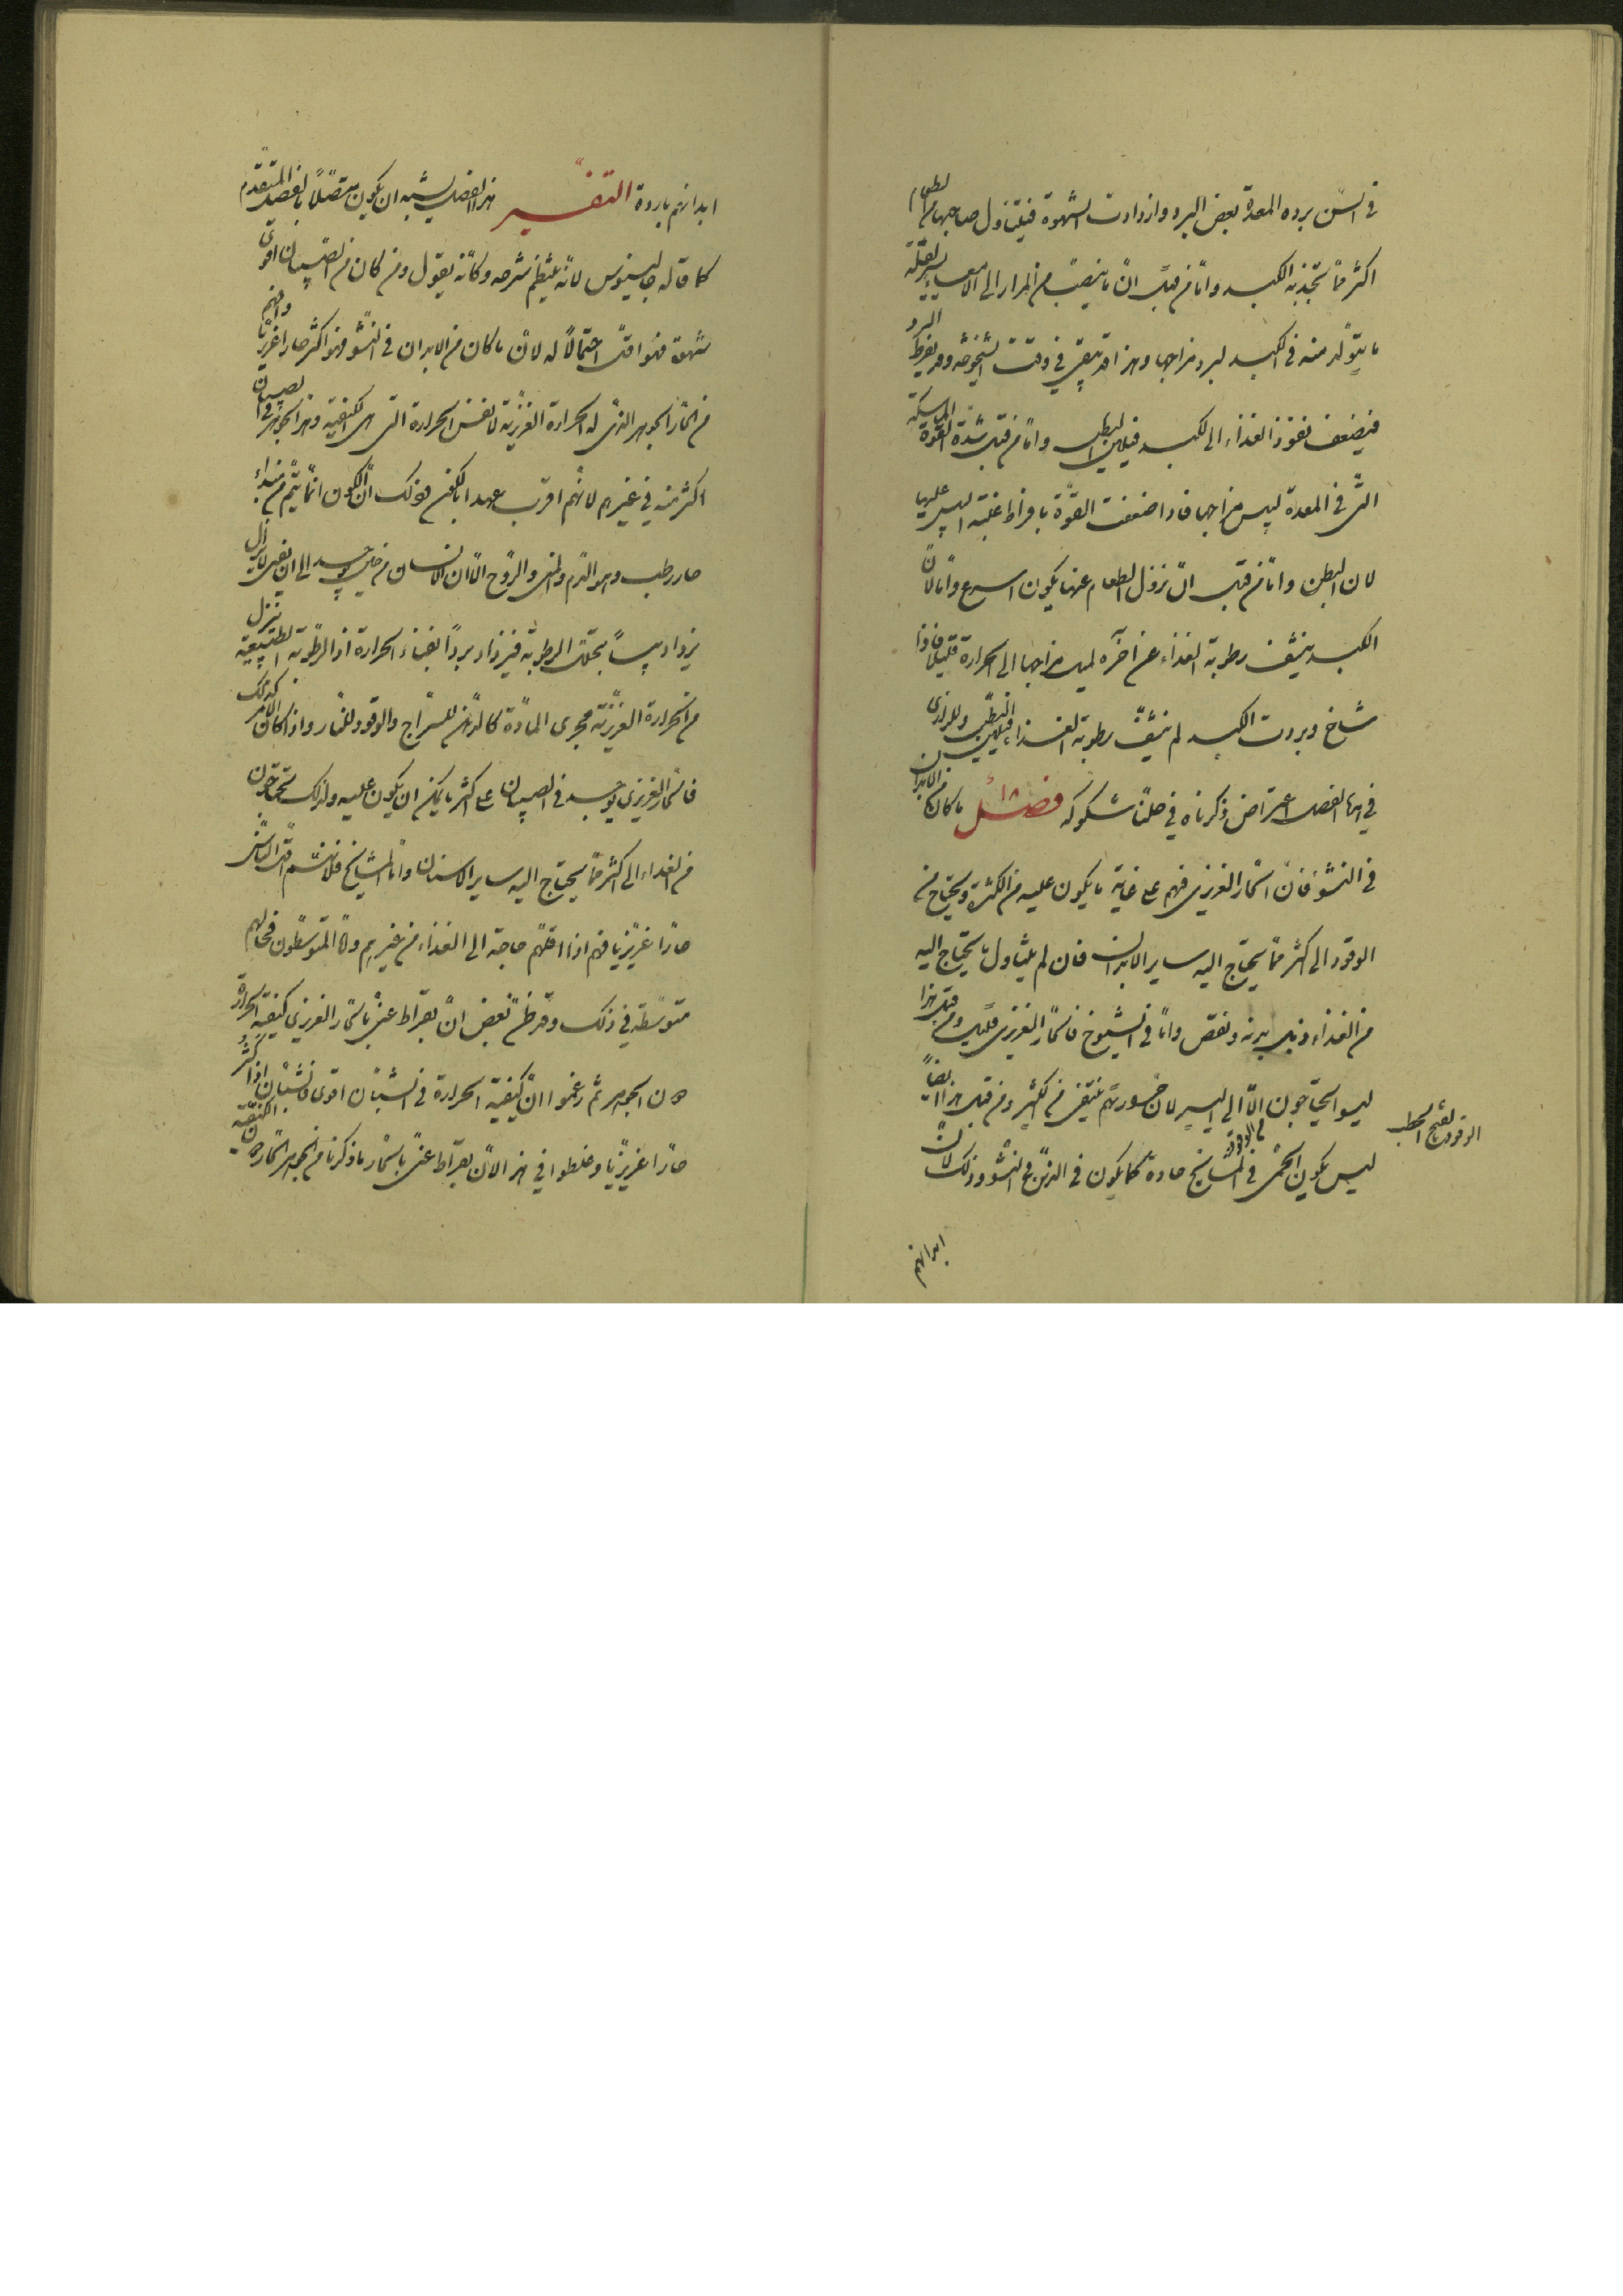 في السن برده المعدة بعض البرد وازدادت الشهوة فيتناول صاحبها من الطعام
اكثر مما تجذبه الكبد واما من قبل ان ما ينصب من المرار الى الامعاء يسير لقلة
ما يتولد منه في الكبد لبرد مزاجها وهذا قد يبقى في وقت الشيخوخة وقد يفرط البرد
فيضعف نفوذ الغذاء الى الكبد فيلين البطن واما من قبل شدة القوة الماسكة
التي في المعدة ليبس مزاجها فاذا ضعفت القوة بافراط غلبة اليبس عليها
لان البطن واما من قبل ان نزول الطعام عنها يكون اسرع واما لان
الكبد ينشف رطوبة الغذاء عن آخره لميل مزاجها الى الحرارة قليلا فاذا
شاخ وبردت الكبد لم ينشف رطوبة الغذاء فيلين البطن وللرازي
في هذا الفصل اعتراض ذكرناه في حلنا شكوكه فصل ما كان من الابدان
في النشو فان الحار الغريزي فيهم على غاية ما يكون عليه من الكثرة ويحتاج من
الوقود الى اكثر مما يحتاج اليه ساير الابدان فان لم يتناول ما يحتاج اليه
من الغذاء ذبل بدنه ونقص واما في الشيوخ فالحار الغريزي قليل ومن قبل هذا
ليسوا يحتاجون الا الى اليسير لان حرارتهم تنطفي من الكثير ومن قبل هذا ايضا
من الوقود
ليس يكون الحمى في المشايخ حادة كما يكون في الذين في النشو وذلك لان
الوقود بالفتح الحطب
ابدانهم
ابدانهم باردة التفسير هذا الفصل يشبه ان يكون متصلا بالفصل المتقدم
كما قاله جالينوس لانه ينتظم شرحه وكانه يقول ومن كان من الصبيان اقوى
شهوة فهو اقل احتمالا له لان ما كان من الابدان في النشو فهو اكثر حارا غريزيا وافهم
من الحار الجوهر الذي له الحرارة الغريزية لا نفس الحرارة التي هي الكيفية وهذا الجوهر في الصبيان
اكثر منه في غيرهم لانهم اقرب عهدا بالكون وذلك ان الكون انما يتم من مبداء
حار رطب وهو الدم والمني والروح الا ان الانسان من حين يوجد الى ان يفنى لا يزال
يزداد يبسا بتحلل الرطوبة فيزداد بردا بفناء الحرارة اذ الرطوبة الطبيعية تنزل
من الحرارة الغريزية مجرى المادة كالدهن للسراج والوقود للنار واذا كان الامر كذلك
فالحار الغريزي يوجد في الصبيان على اكثر ما يمكن ان يكون عليه ولذلك يحتاجون
من الغذاء الى اكثر مما يحتاج اليه ساير الاسنان واما المشايخ فلانهم اقل الناس
حارا غريزيا فهم اذا اقلهم حاجة الى الغذاء من غيرهم واما المتوسطون فحالهم
متوسطة في ذلك وقد ظن بعض ان بقراط عنى بالحار الغريزي كيفية الحرارة
دون الجوهر ثم زعموا ان كيفية الحرارة في الشبان اقوى فالشبان اذا اكثر
حارا غريزيا وغلطوا في هذا لان بقراط عنى بالحار ما ذكرنا من الجوهر الحار دون الكيفية